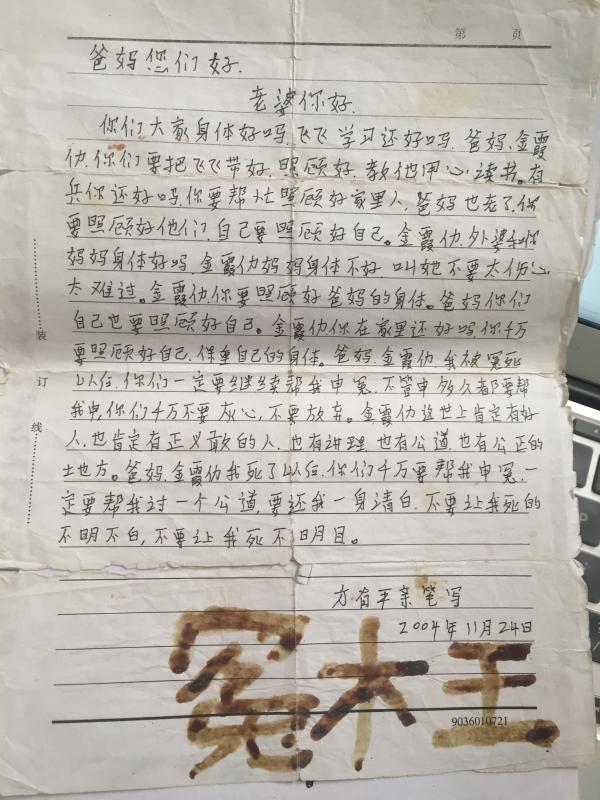 第 页
爸妈您们好.
老婆你好.
你们大家身体好吗,飞飞学习还好吗.爸妈、金霞
仂,你们要把飞飞带好.照顾好.教他用心读书。有
兵你还好吗,你要帮忙照顾好家里人,爸妈也老了,你
要照顾好他们,自己要照顾好自己。金霞仂,外婆和你
妈妈身体好吗,金霞仂妈妈身体不好 叫她不要太伤心
太难过。金霞仂,你要照顾好爸妈的身体。爸妈你们
自己也要照顾好自己。金霞仂你在家里还好吗,你千万
要照顾好自己,保重自己的身体。爸妈.金霞仂,我被冤死
以后,你们一定要继续帮我申冤.不管申多久都要帮
我申,你们千万不要灰心,不要放弃。金霞仂这世上肯定有好
人,也肯定有正义敢的人.也有讲理.也有公道.也有公正的
土地方。爸妈,金霞仂我死了以后,你们千万要帮我申冤.一
定要帮我讨一个公道,要还我一身清白.不要让我死的
不明不白,不要让我死不明目。
方有平亲笔写
2004年11月24日
冤大王
9036010721
装
订
线